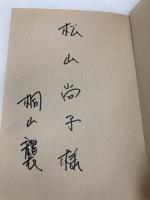 松山尚子様
桐山襲